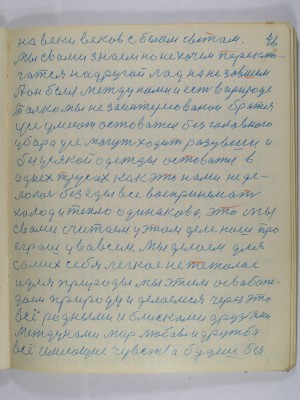 на веки веков с белом светам. 26
Мы с вами знаем но не хочем переклю-
чатся на другой лад на не зовисим
А он был междунами и есть в природе
Только мы не заинтересовани братся
уже умеют остоватся без головного
убара уже могут ходит разувши и
без всякой одежды остовать в
одних трусах как это нами не де-
лолося без еды все воспринемать
холод и тепло одинаково, это мы
с вами считаем у этом деле наш про
еграш увавсем. Мы делаем для
самих себя легкое не тежолое
и для природы мы этим освобож-
даем природу и делаемся через это
всё родными и блискоми друзями
между нами мир любов и дружба
всё имеющие чувства будем без